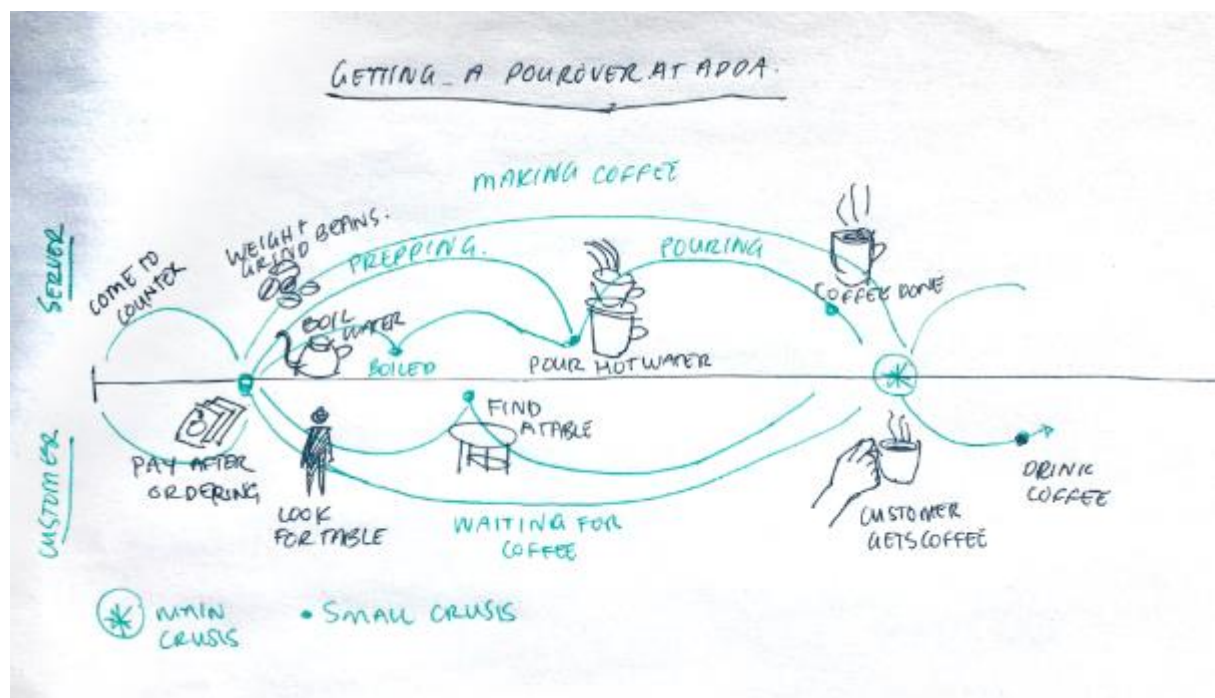 GETTING A POUROVER AT ADDA.
MAKING COFFEE
SERVER
COME TO
COUNTER
WEIGH +
GRIND BEANS.
PREPPING.
POURING
BOIL
WATER
BOILED
POUR HOT WATER
COFFEE DONE
CUSTOMER
PAY AFTER
ORDERING
LOOK
FOR TABLE
FIND
A TABLE
WAITING FOR
COFFEE
CUSTOMER
GETS COFFEE
DRINK
COFFEE
MAIN
CRUSIS
SMALL CRUSIS